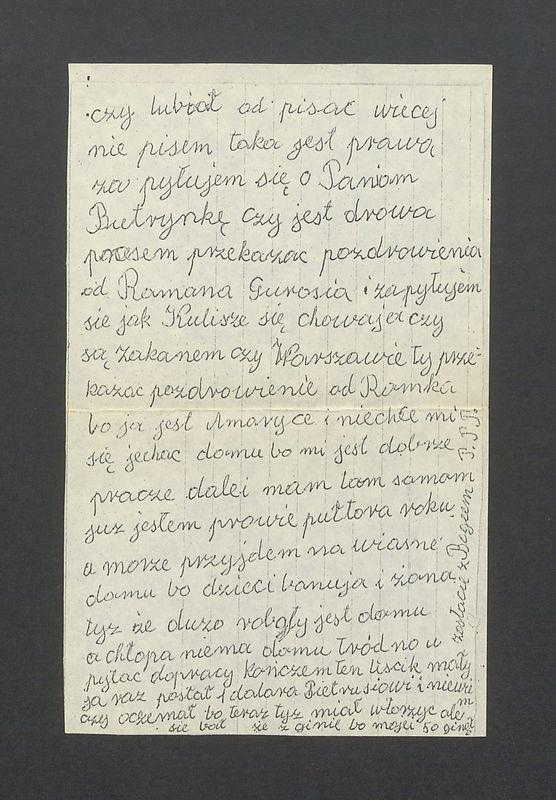 czy lubiał od pisać wiecej
nie pisem taka jest prawa
za pytujem się o Paniom
Bietrynkę czy jest drowa
prosem przekazac pozdrowienia
od Romana Gurosia i zapytujem
sie jak Kulisze się chowaja czy
są Zakanem czy Warszawie ty prze-
kazac pozdrowienie od Romka
bo ja jest Amaryce i niechte mi
się jechac domu bo mi jest dobrze
pracze dalei mam tom samom
juz jestem prawie puttora roku
a morze przyjdem na wiasne
domu bo dzieci banuja i zona
tyz ze duzo roboty jest domu
a chłopa niema domu tródno u
pytac dopracy kończem ten liscik mały
ja raz postał 1 dalara Pietrusiowi i niewi
czy oczemał bo teraz tyz miał włorzyc ale
sie bał sie z ginie bo mojei 50 gineł
zostacie z Bogiem P.P.P.